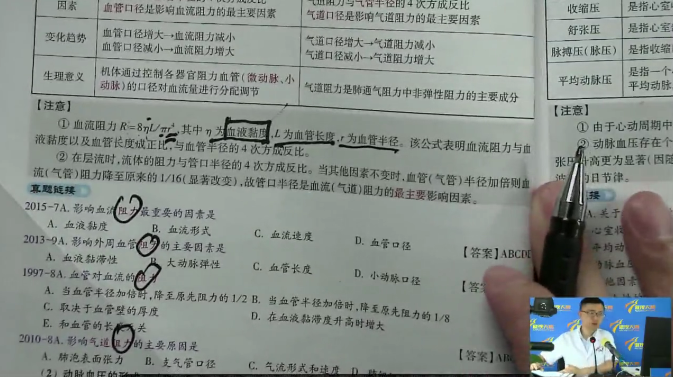 因素
血管口径是影响血流阻力的最主要因素
气道阻力与气管半径的4次方成反比
气道口径是影响气道阻力的最主要因素
变化趋势
血管口径增大→血流阻力减小
血管口径减小→血流阻力增大
气道口径增大→气道阻力减小
气道口径减小→气道阻力增大
生理意义
机体通过控制各器官阻力血管(微动脉、小
动脉)的口径对血流量进行分配调节
气道阻力是肺通气阻力中非弹性阻力的主要成分
【注意】
① 血流阻力 R=8ηL/πr⁴,其中 η 为血液黏度,L 为血管长度,r 为血管半径。该公式表明血流阻力与血
液黏度以及血管长度成正比,与血管半径的4次方成反比。
② 在层流时,流体的阻力与管口半径的4次方成反比。当其他因素不变时,血管(气管)半径加倍则血
流(气道)阻力降至原来的1/16(显著改变),故管口半径是血流(气道)阻力的最主要影响因素。
真题链接
2015-7A. 影响血流阻力最重要的因素是
A. 血液黏度
B. 血流形式
C. 血流速度
D. 血管口径
2013-9A. 影响外周血管阻力的主要因素是
【答案】ABCDD
A. 血液黏滞性
B. 大动脉弹性
C. 血管长度
D. 小动脉口径
1997-8A. 血管对血流的阻力
A. 当血管半径加倍时,降至原先阻力的1/2
B. 当血管半径加倍时,降至原先阻力的1/8
C. 取决于血管壁的厚度
D. 在血液黏滞度升高时增大
E. 和血管的长度无关
2010-8A. 影响气道阻力的主要原因是
A. 肺泡表面张力
B. 支气管口径
C. 气流形式和速度
收缩压
是指心室
舒张压
是指心室
脉搏压(脉压)
是指收缩
平均动脉压
是指一个
【注意】
① 由于心动周期中
② 动脉血压存在个